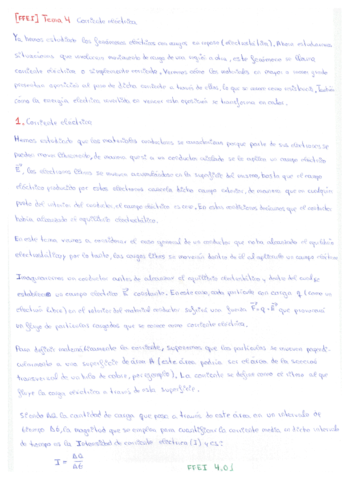 [FFEI] Tema 4 Corriente eléctrica
Ya hemos estudiado los fenómenos eléctricos con cargas en reposo (electrostática). Ahora estudiaremos
situaciones que involucran movimiento de cargas de una región a otra, este fenómeno se llama
corriente eléctrica o simplemente corriente. Veremos cómo los materiales en mayor o menor grado
presentan oposición al paso de dicha corriente a través de ellos, lo que se conoce como resistencia. También
cómo la energía eléctrica invertida en vencer esta oposición se transforma en calor.
1. Corriente eléctrica
Hemos establecido que los materiales conductores se caracterizan porque parte de sus electrones se
pueden mover libremente, de manera que si a un conductor aislado se le aplica un campo eléctrico
E, los electrones libres se mueven acumulándose en la superficie del mismo, hasta que el campo
eléctrico producido por estos electrones cancela dicho campo externo, de manera que en cualquier
punto del interior del conductor el campo eléctrico es cero. En estas condiciones decíamos que el conductor
había alcanzado el equilibrio electrostático.
En este tema vamos a considerar el caso general de un conductor que no ha alcanzado el equilibrio
electrostático y por lo tanto, las cargas libres se moverán dentro de él al aplicarle un campo eléctrico
Imaginemos un conductor antes de alcanzar el equilibrio electrostático, dentro del cual se
establece un campo eléctrico E constante. En este caso, cada partícula con carga q (como un
electrón libre) en el interior del material conductor sufrirá una fuerza F = q·E que provocará
un flujo de partículas cargadas que se conoce como corriente eléctrica.
Para definir matemáticamente la corriente, suponemos que las partículas se mueven perpendi-
cularmente a una superficie de área A (este área podría ser el área de la sección
transversal de un hilo de cobre, por ejemplo). La corriente se define como el ritmo al que
fluye la carga eléctrica a través de esta superficie.
Siendo ΔQ la cantidad de carga que pasa a través de este área en un intervalo de
tiempo Δt, la magnitud que se emplea para cuantificar la corriente media en dicho intervalo
de tiempo es la Intensidad de corriente eléctrica (I) y es:
I = ΔQ/Δt
FFEI 4.01